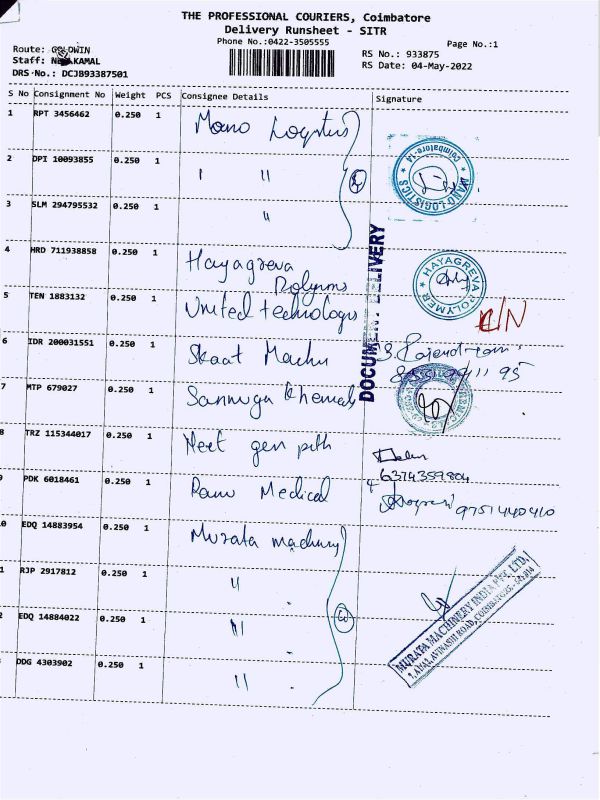 THE PROFESSIONAL COURIERS, Coimbatore
Delivery Runsheet - SITR
Phone No.:0422-3505555
Page No.:1
Route: GOLDWIN
RS No.: 933875
Staff: KAMAL
RS Date: 04-May-2022
DRS No.: DCJB93387501
S No Consignment No Weight PCS Consignee Details Signature
1 RPT 3456462 0.250 1 Mano Logistics
2 DPI 10093855 0.250 1 " "
3 SLM 294795532 0.250 1 "
MANO LOGISTICS * Coimbatore-14 *
DOCUMENT DELIVERY
4 HRD 711938858 0.250 1 Hayagreva Polymers
* HAYAGREVA POLYMER *
5 TEN 1883132 0.250 1 United technologies
6 IDR 200031551 0.250 1 Skaat Machn
7 MTP 679027 0.250 1 Sanmuga Chemals
8 TRZ 115344017 0.250 1 Neet gen path
6374359804
9 PDK 6018461 0.250 1 Ramu Medical
9751440410
0 EDQ 14883954 0.250 1 Murata machiny
1 RJP 2917812 0.250 1 "
2 EDQ 14884022 0.250 1 "
DDG 4303902 0.250 1 "
MURATA MACHINERY INDIA Pvt. LTD.,
AVINASHI ROAD, COIMBATORE